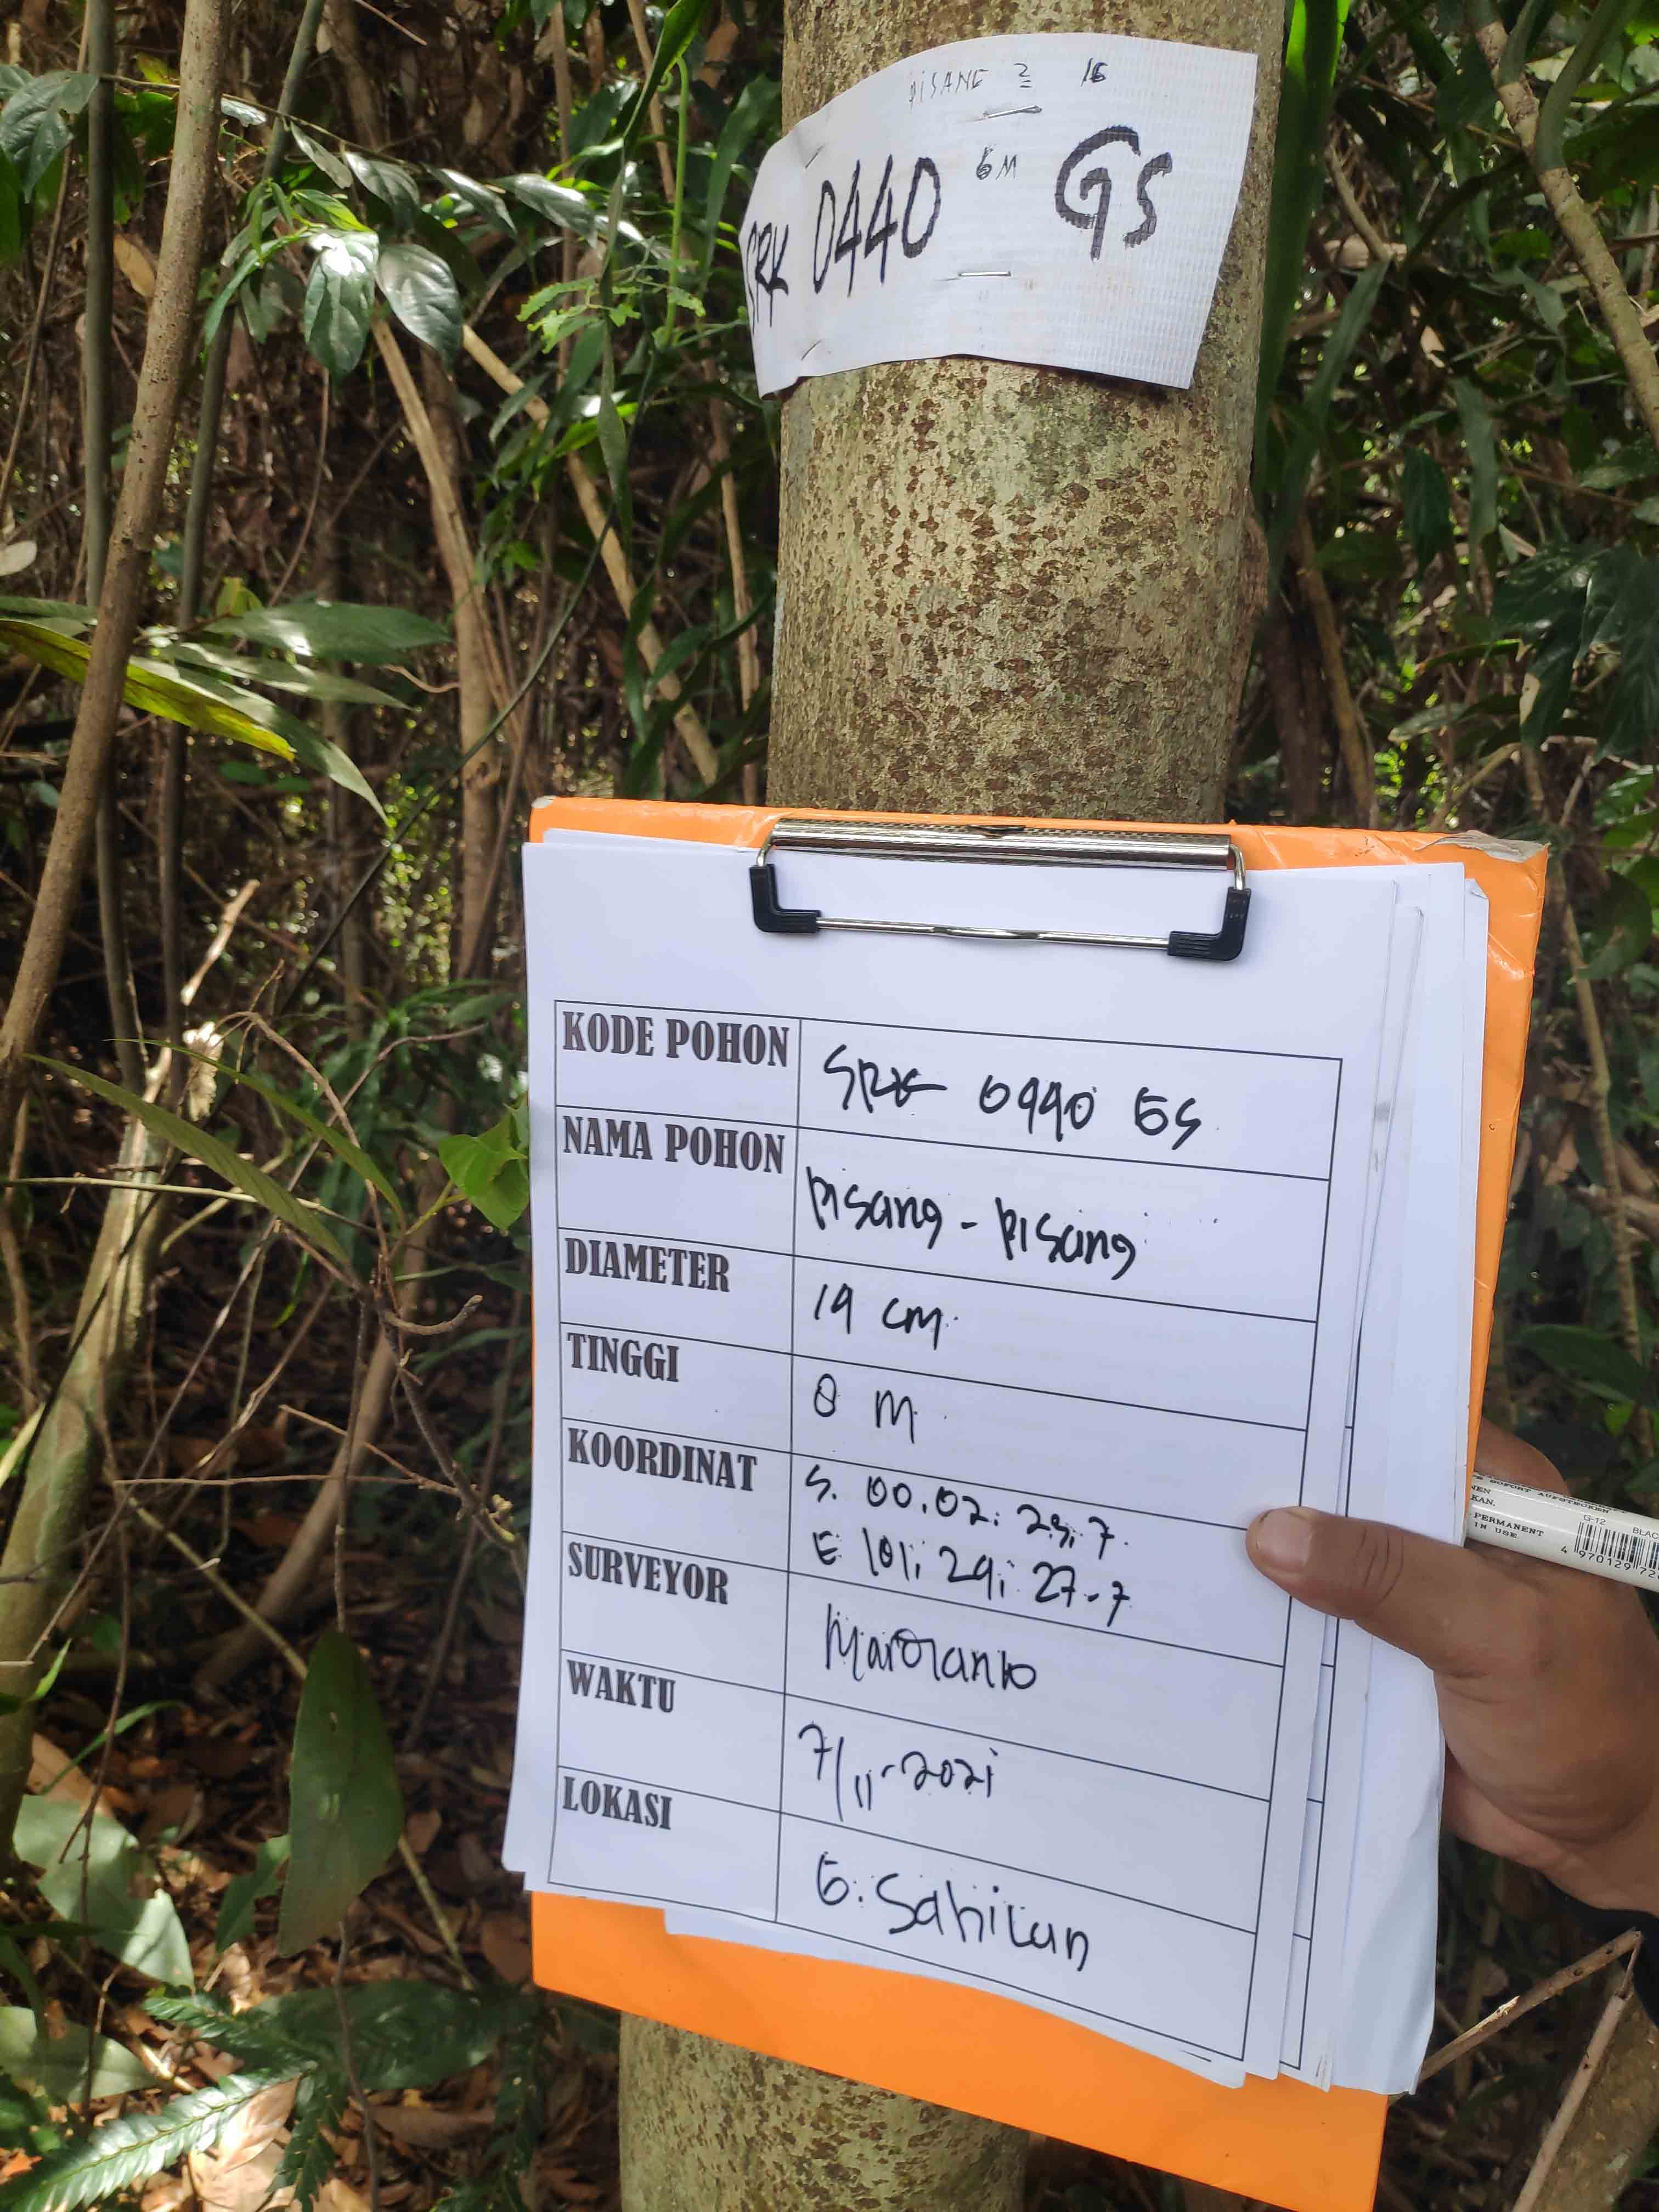 PISANG 2 16
SRK 0440 6M GS
KODE POHON SRK 0440 GS
NAMA POHON Pisang - Pisang
DIAMETER 19 cm
TINGGI 8 M
KOORDINAT S. 00.02: 29,7
E 101; 29; 27.7
SURVEYOR
WAKTU 7/11-2021
LOKASI G. Sahilan
PERMANENT
IN USE
G-12
4 970129 72